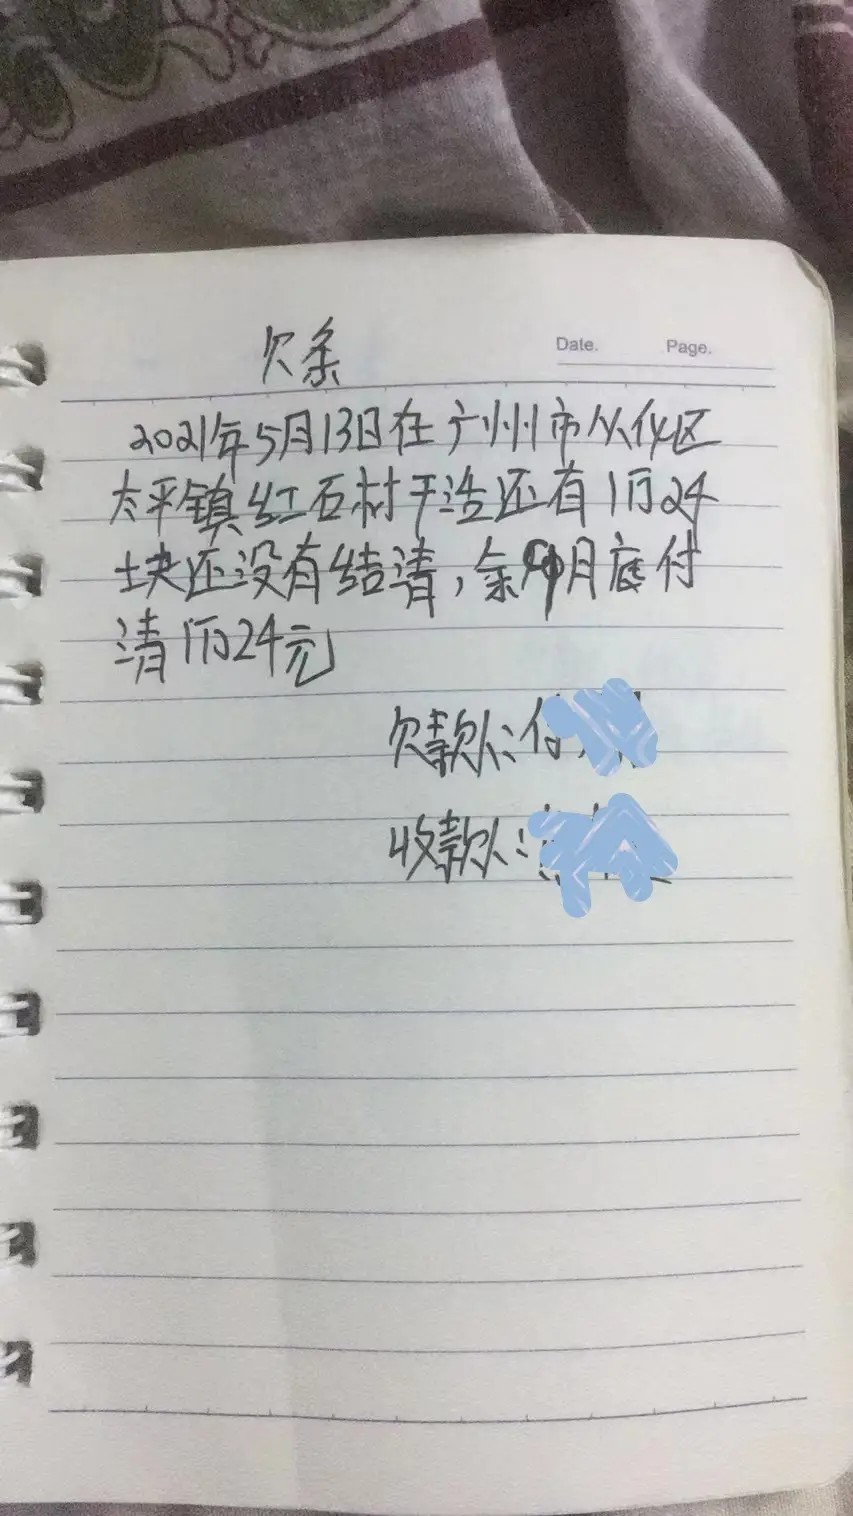 欠条
Date. Page.
2021年5月13日在广州市从化区
太平镇红石材干活还有1万24
块还没有结清，余 月底付
清1万24元
欠款人：付
收款人：